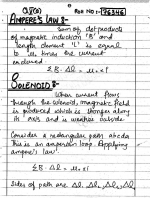 Q8(a) REG NO :- 76346
AMPERE'S LAW :-
Sum of dot products
of magnetic induction 'B' and
length element 'L' is equal
to μ₀ times the current
enclosed.
ΣB·ΔL = μ₀×I
B
SOLENOID :-
When current flows
through the solenoid, magnetic field
is produced which is stronger along
its axis and is weaker outside
Consider a rectangular path abcda
This is an amperian loop. Applying
ampere's law:
ΣB·ΔL = μ₀×I
Sides of path are ΔL₁ ΔL₂ ΔL₃ ΔL₄